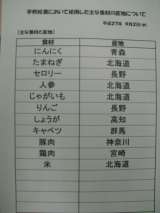 学校給食において使用した主な食材の産地について
平成27年 9月2日(水)
(主な食材と産地)
食材 産地
にんにく 青森
たまねぎ 北海道
セロリー 長野
人参 北海道
じゃがいも 北海道
りんご 長野
しょうが 高知
キャベツ 群馬
豚肉 神奈川
鶏肉 宮崎
米 北海道